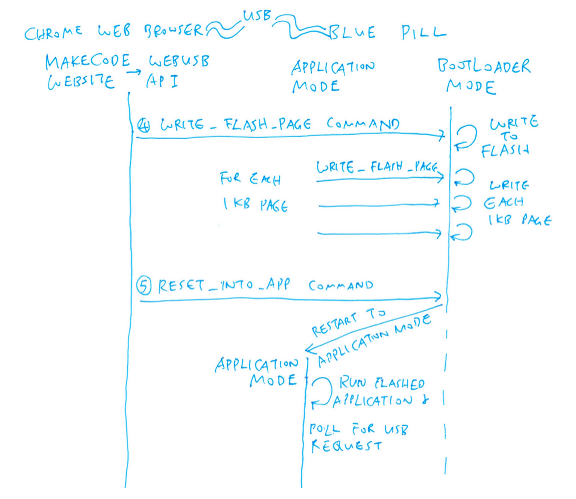 CHROME WEB BROWSER USB BLUE PILL
MAKECODE → WEBUSB
WEBSITE API
APPLICATION
MODE
BOOTLOADER
MODE
④ WRITE_FLASH_PAGE COMMAND
WRITE
TO
FLASH
FOR EACH
1 KB PAGE
WRITE_FLASH_PAGE
WRITE
EACH
1 KB PAGE
⑤ RESET_INTO_APP COMMAND
RESTART TO
APPLICATION MODE
APPLICATION
MODE
RUN FLASHED
APPLICATION &
POLL FOR USB
REQUEST